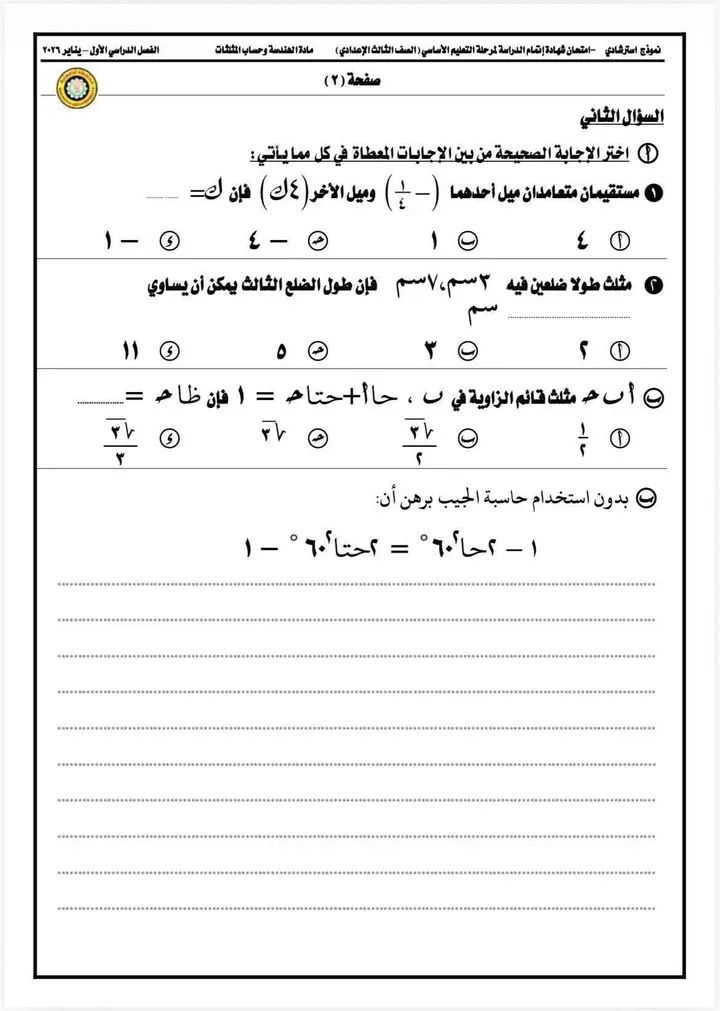 نموذج استرشادي -امتحان شهادة إتمام الدراسة لمرحلة التعليم الأساسي (الصف الثالث الإعدادي) مادة الهندسة وحساب المثلثات الفصل الدراسي الأول – يناير ٢٠٢٦
صفحة (٢)
السؤال الثاني
أ اختر الإجابة الصحيحة من بين الإجابات المعطاة في كل مما يأتي:
١ مستقيمان متعامدان ميل أحدهما (-١/٤) وميل الأخر (٤ك) فإن ك= ............
أ ٤ ب ١ حـ - ٤ ء - ١
٢ مثلث طولا ضلعين فيه ٣سم،٧سم فإن طول الضلع الثالث يمكن أن يساوي
............ سم
أ ٢ ب ٣ حـ ٥ ء ١١
ب أ ب حـ مثلث قائم الزاوية في ب ، حاأ+حتاحـ = ١ فإن ظاحـ =............
أ ١/٢ ب √٣/٢ حـ √٣ ء √٣/٣
ب بدون استخدام حاسبة الجيب برهن أن:
١ - ٢حا²٦٠° = ٢حتا²٦٠° - ١